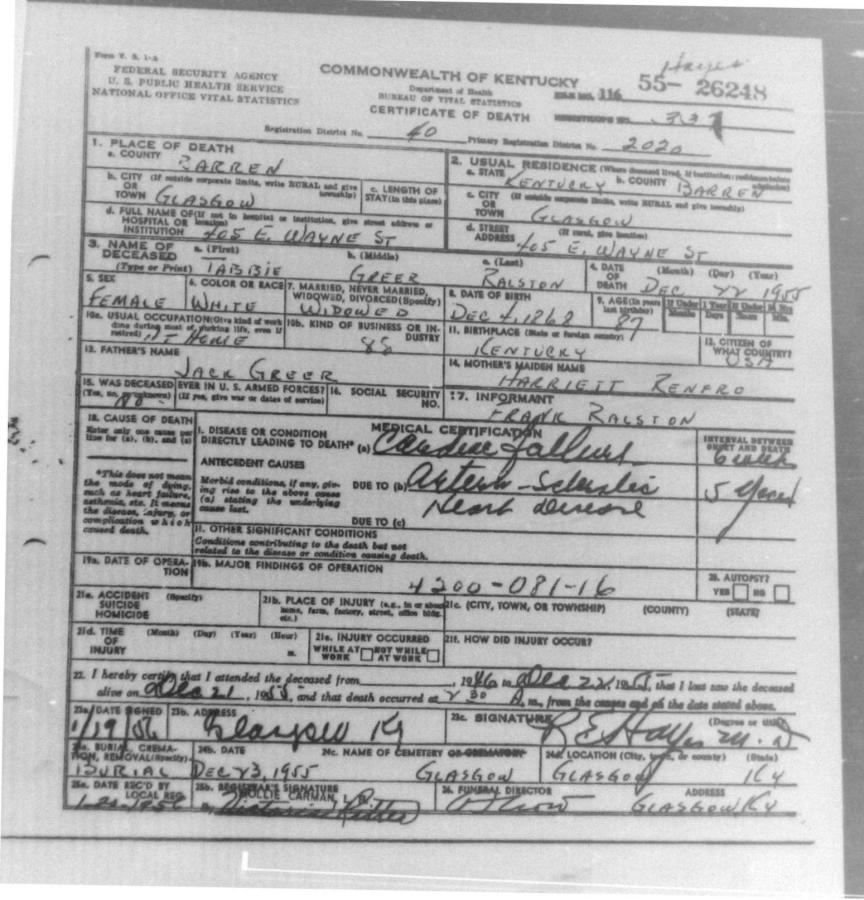 Form V. S. 1-A
FEDERAL SECURITY AGENCY
U. S. PUBLIC HEALTH SERVICE
NATIONAL OFFICE VITAL STATISTICS
COMMONWEALTH OF KENTUCKY
Department of Health
BUREAU OF VITAL STATISTICS
CERTIFICATE OF DEATH
Hayes
FILE NO. 116 55- 26248
REGISTRAR'S NO. 337
Registration District No. 40 Primary Registration District No. 2020
1. PLACE OF DEATH
a. COUNTY BARREN
b. CITY (If outside corporate limits, write RURAL and give township)
OR
TOWN GLASGOW
c. LENGTH OF STAY (in this place)
d. FULL NAME OF (If not in hospital or institution, give street address or location)
HOSPITAL OR
INSTITUTION 405 E. WAYNE ST
2. USUAL RESIDENCE (Where deceased lived, if institution: residence before admission)
a. STATE KENTUCKY b. COUNTY BARREN
c. CITY (If outside corporate limits, write RURAL and give township)
OR
TOWN GLASGOW
d. STREET (If rural, give location)
ADDRESS 405 E. WAYNE ST
3. NAME OF DECEASED
(Type or Print)
a. (First) TABBIE
b. (Middle) GREER
c. (Last) RALSTON
4. DATE OF DEATH (Month) (Day) (Year)
DEC 22 1955
5. SEX
FEMALE
6. COLOR OR RACE
WHITE
7. MARRIED, NEVER MARRIED, WIDOWED, DIVORCED (Specify)
WIDOWED
8. DATE OF BIRTH
DEC 4, 1868
9. AGE (In years last birthday)
87
If Under 1 Year Months Days
If Under 24 Hrs Hours Min.
10a. USUAL OCCUPATION (Give kind of work done during most of working life, even if retired)
AT HOME
10b. KIND OF BUSINESS OR INDUSTRY
88
11. BIRTHPLACE (State or foreign country)
KENTUCKY
12. CITIZEN OF WHAT COUNTRY?
USA
13. FATHER'S NAME
JACK GREER
14. MOTHER'S MAIDEN NAME
HARRIETT RENFRO
15. WAS DECEASED EVER IN U. S. ARMED FORCES?
(Yes, no, or unknown) (If yes, give war or dates of service)
NO
16. SOCIAL SECURITY NO.
17. INFORMANT
FRANK RALSTON
18. CAUSE OF DEATH
Enter only one cause per line for (a), (b), and (c)
*This does not mean the mode of dying, such as heart failure, asthenia, etc. It means the disease, injury, or complication which caused death.
MEDICAL CERTIFICATION
I. DISEASE OR CONDITION
DIRECTLY LEADING TO DEATH* (a) Cardiac failure
INTERVAL BETWEEN ONSET AND DEATH
6 weeks
ANTECEDENT CAUSES
Morbid conditions, if any, giving rise to the above cause (a) stating the underlying cause last.
DUE TO (b) Arterio-Sclerotic
Heart Disease
5 years
DUE TO (c)
II. OTHER SIGNIFICANT CONDITIONS
Conditions contributing to the death but not related to the disease or condition causing death.
19a. DATE OF OPERATION
19b. MAJOR FINDINGS OF OPERATION
4200-081-16
20. AUTOPSY?
YES NO
21a. ACCIDENT (Specify)
SUICIDE
HOMICIDE
21b. PLACE OF INJURY (e.g., in or about home, farm, factory, street, office bldg. etc.)
21c. (CITY, TOWN, OR TOWNSHIP) (COUNTY) (STATE)
21d. TIME OF INJURY (Month) (Day) (Year) (Hour)
m.
21e. INJURY OCCURRED
WHILE AT WORK NOT WHILE AT WORK
21f. HOW DID INJURY OCCUR?
22. I hereby certify that I attended the deceased from , 1946 to Dec 22, 1955, that I last saw the deceased
alive on Dec 21, 1955, and that death occurred at 2 30 A m., from the causes and on the date stated above.
23a. DATE SIGNED
1/19/56
23b. ADDRESS
Glasgow Ky
23c. SIGNATURE (Degree or title)
R E Hayes M.D
24a. BURIAL, CREMATION, REMOVAL (Specify)
BURIAL
24b. DATE
DEC 23, 1955
24c. NAME OF CEMETERY OR CREMATORY
GLASGOW
24d. LOCATION (City, town, or county) (State)
GLASGOW KY
25a. DATE REC'D BY LOCAL REG.
1-20-1956
25b. REGISTRAR'S SIGNATURE
MOLLIE CARMAN, L.R.
26. FUNERAL DIRECTOR ADDRESS
GLASGOW KY